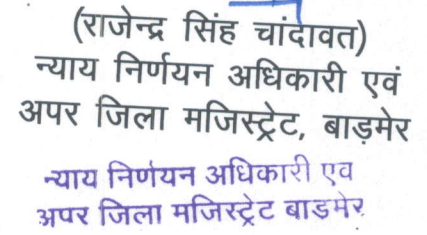 (राजेन्द्र सिंह चांदावत)
न्याय निर्णयन अधिकारी एवं
अपर जिला मजिस्ट्रेट, बाड़मेर
न्याय निर्णयन अधिकारी एव
अपर जिला मजिस्ट्रेट बाडमेर